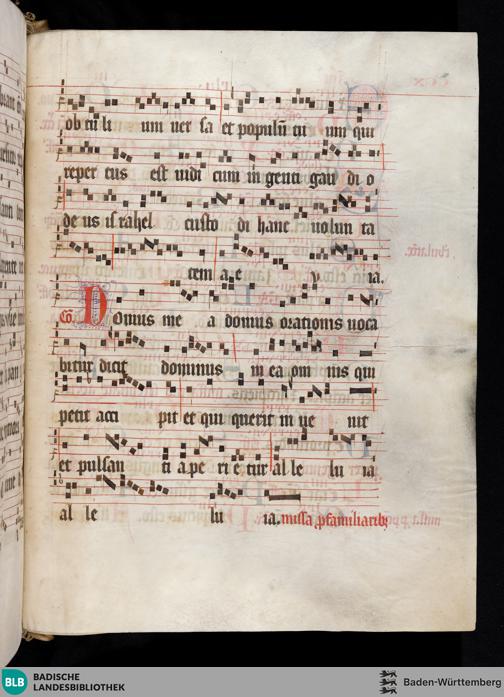 ob tu li um uer sa et populū tu um qui
reper tus est uidi cum in genti gau di o
de us israhel custo di hanc uolun ta
tem a e ia.
Co. Domus me a domus orationis uoca
bitur dicit dominus in ea om nis qui
petit acci pit et qui querit in ue nit
et pulsan ti ape ri e tur al le lu ia
al le lu ia. missa
BLB BADISCHE
LANDESBIBLIOTHEK
Baden-Württemberg